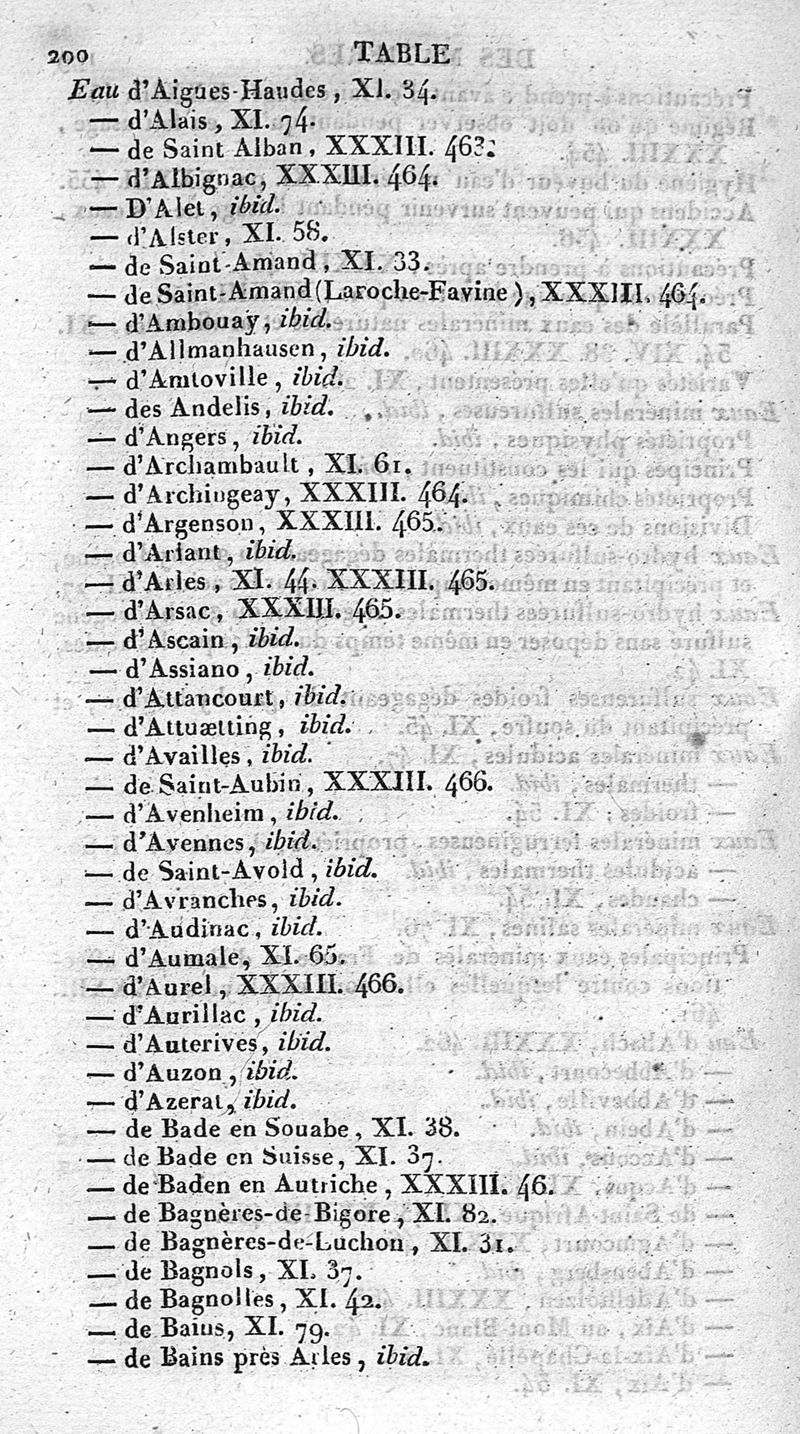 200 TABLE
Eau d'Aigues-Haudes, XI. 34.
— d'Alais, XI. 74.
— de Saint Alban, XXXIII. 463.
— d'Albignac, XXXIII. 464.
— D'Alet, ibid.
— d'Alster, XI. 58.
— de Saint-Amand, XI. 33.
— de Saint-Amand (Laroche-Favine), XXXIII. 464.
— d'Ambouay, ibid.
— d'Allmanhausen, ibid.
— d'Amtoville, ibid.
— des Andelis, ibid.
— d'Angers, ibid.
— d'Archambault, XI. 61.
— d'Archingeay, XXXIII. 464.
— d'Argenson, XXXIII. 465.
— d'Arlant, ibid.
— d'Arles, XI. 44. XXXIII. 465.
— d'Arsac, XXXIII. 465.
— d'Ascain, ibid.
— d'Assiano, ibid.
— d'Attancourt, ibid.
— d'Attuætting, ibid.
— d'Availles, ibid.
— de Saint-Aubin, XXXIII. 466.
— d'Avenheim, ibid.
— d'Avennes, ibid.
— de Saint-Avold, ibid.
— d'Avranches, ibid.
— d'Audinac, ibid.
— d'Aumale, XI. 65.
— d'Aurel, XXXIII. 466.
— d'Aurillac, ibid.
— d'Auterives, ibid.
— d'Auzon, ibid.
— d'Azerat, ibid.
— de Bade en Souabe, XI. 38.
— de Bade en Suisse, XI. 37.
— de Baden en Autriche, XXXIII. 46.
— de Bagnères-de-Bigore, XI. 82.
— de Bagnères-de-Luchon, XI. 31.
— de Bagnols, XI. 37.
— de Bagnolles, XI. 42.
— de Bains, XI. 79.
— de Bains près Arles, ibid.